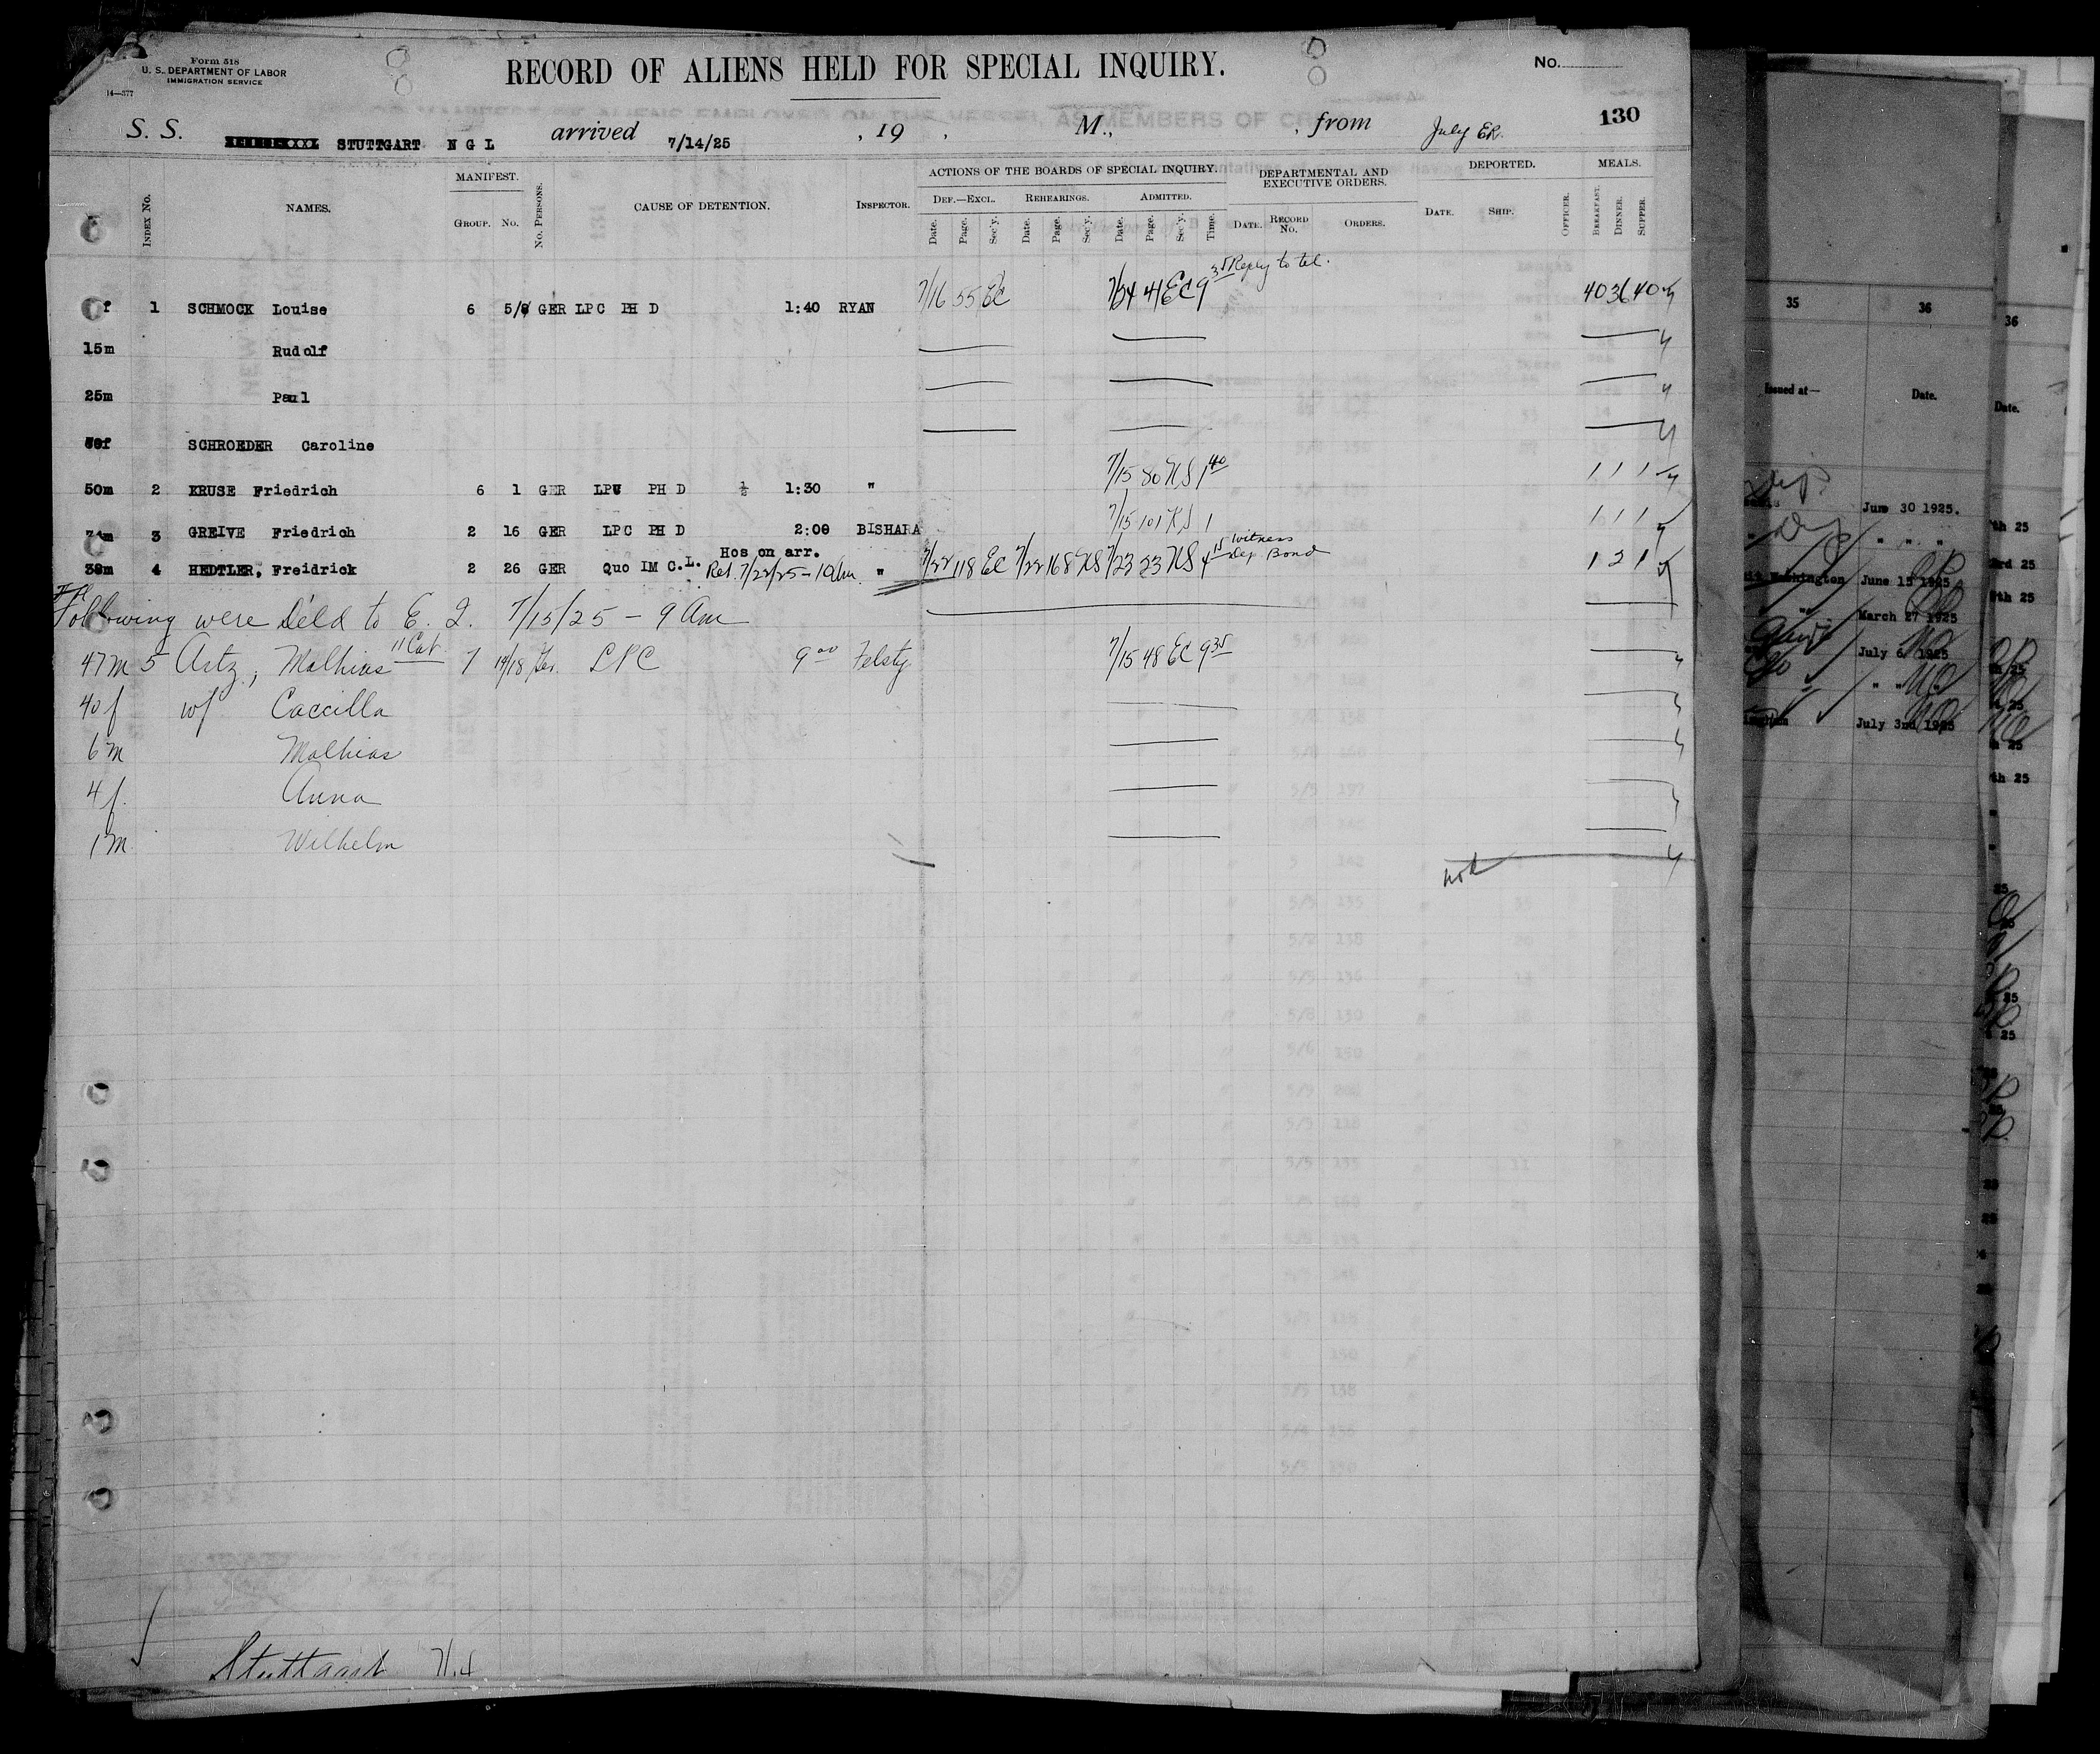 Form 518
U. S. DEPARTMENT OF LABOR
IMMIGRATION SERVICE
14—377
RECORD OF ALIENS HELD FOR SPECIAL INQUIRY.
No.
130
S. S. STUTTGART N G L arrived 7/14/25 , 19 , M., , from July ER.
INDEX No. NAMES. MANIFEST. GROUP. No. No. PERSONS. CAUSE OF DETENTION. INSPECTOR. ACTIONS OF THE BOARDS OF SPECIAL INQUIRY. DEPARTMENTAL AND EXECUTIVE ORDERS. DEPORTED. MEALS.
DEF.—EXCL. REHEARINGS. ADMITTED.
Date. Page. Sec'y. Date. Page. Sec'y. Date. Page. Sec'y. Time. DATE. RECORD No. ORDERS. DATE. SHIP. OFFICER. BREAKFAST. DINNER. SUPPER.
f 1 SCHMOCK Louise 6 5/8 GER LPC PH D 1:40 RYAN 7/16 55 EC 7/24 41 EC 9 35 Reply to tel. 40 36 40
15m Rudolf
25m Paul
SCHROEDER Caroline
50m 2 KRUSE Friedrich 6 1 GER LPC PH D ½ 1:30 " 7/15 80 KS 1 40 1 1 1
3 GREIVE Friedrich 2 16 GER LPC PH D 2:00 BISHARA 7/15 101 KS 1 1 1 1
38m 4 HEDTLER, Freidrick 2 26 GER Quo IM C.L. Hos on arr. Rel. 7/22/25 - 10 Am. " 7/22 118 EC 7/22 168 KS 7/23 23 KS 4 15 Witness Dep Bond 1 2 1
Following were Del'd to E. I. 7/15/25 - 9 Am
47m 5 Artz, Mathias 7 14/18 Ger. LPC 9 00 Felsty 7/15 48 EC 9 35
40 f wf Caecilla
6 m Mathias
4 f. Anna
1 m Wilhelm
Stuttgart 7/14
35 36
Issued at— Date.
June 30 1925.
" " "
Washington June 15 1925
" March 27 1925
July 6 1925
" "
July 3rd 1925
36
Date.